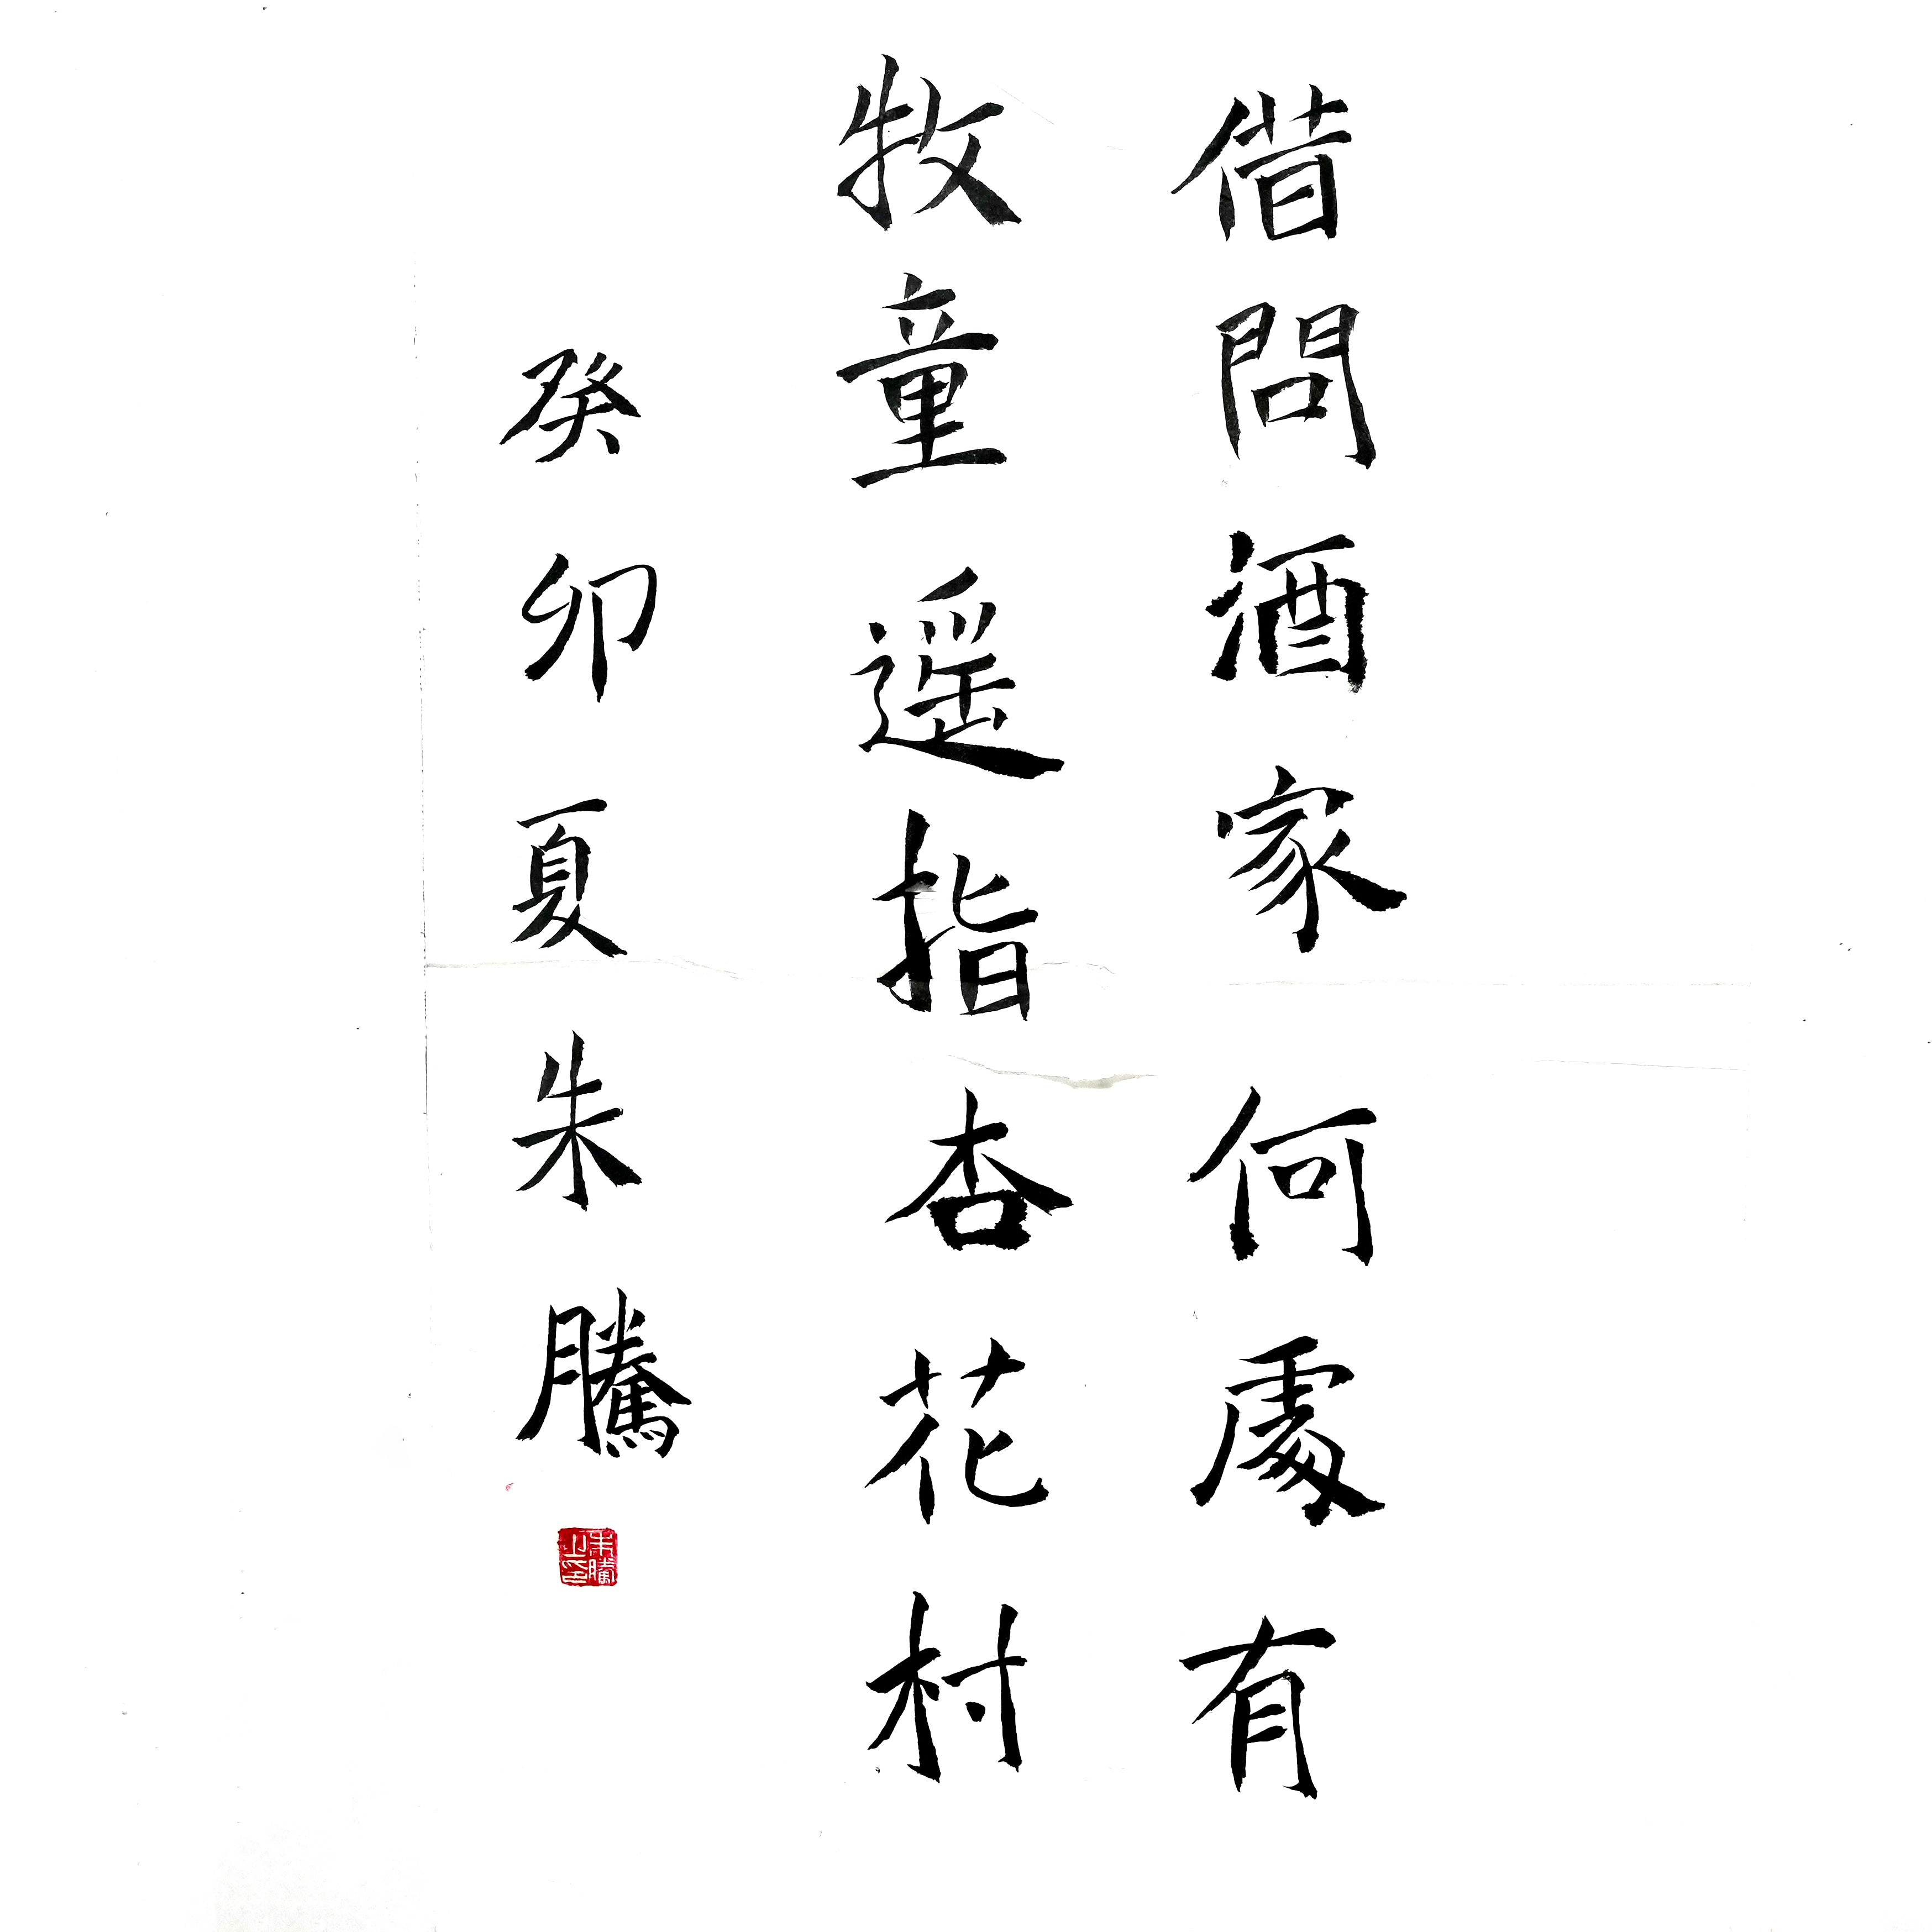 借問酒家何處有
牧童遥指杏花村
癸卯夏朱騰
朱騰之印